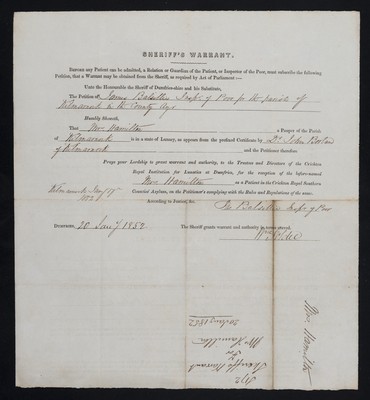 SHERIFF'S WARRANT.
Before any Patient can be admitted, a Relation or Guardian of the Patient, or Inspector of the Poor, must subscribe the following
Petition, that a Warrant may be obtained from the Sheriff, as required by Act of Parliament :—
Unto the Honourable the Sheriff of Dumfries-shire and his Substitutes,
The Petition of James Inspr of Poor for the parish of
Kilmarnock in the County Ayr
Humbly Sheweth,
That Mrs Hamilton a Pauper of the Parish
of Kilmarnock is in a state of Lunacy, as appears from the prefixed Certificate by Dr John
of Kilmarnock and the Petitioner therefore
Prays your Lordship to grant warrant and authority, to the Trustees and Directors of the Crichton
Royal Institution for Lunatics at Dumfries, for the reception of the before-named
Mrs Hamilton as a Patient to the Crichton Royal Southern
Counties' Asylum, on the Petitioner's complying with the Rules and Regulations of the same.
According to Justice, &c.
Inspr of Poor
Dumfries, 20 Jany 1852 The Sheriff grants warrant and authority in terms stated.
Mrs Hamilton
Sheriff's Warrant
For
Mrs Hamilton
20 Jany 1852